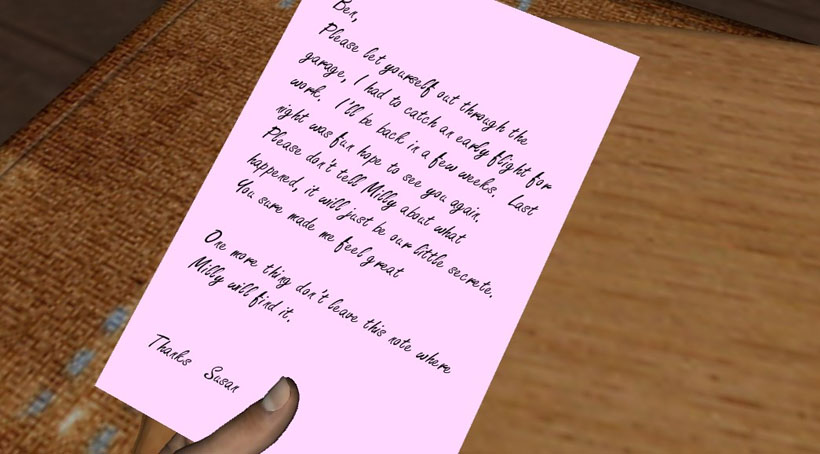 Ben,
Please let yourself out through the
garage, I had to catch an early flight for
work. I'll be back in a few weeks. Last
night was fun hope to see you again.
Please don't tell Milly about what
happened, it will just be our little secrete.
You sure made me feel great
One more thing don't leave this note where
Milly will find it.
Thanks Susan